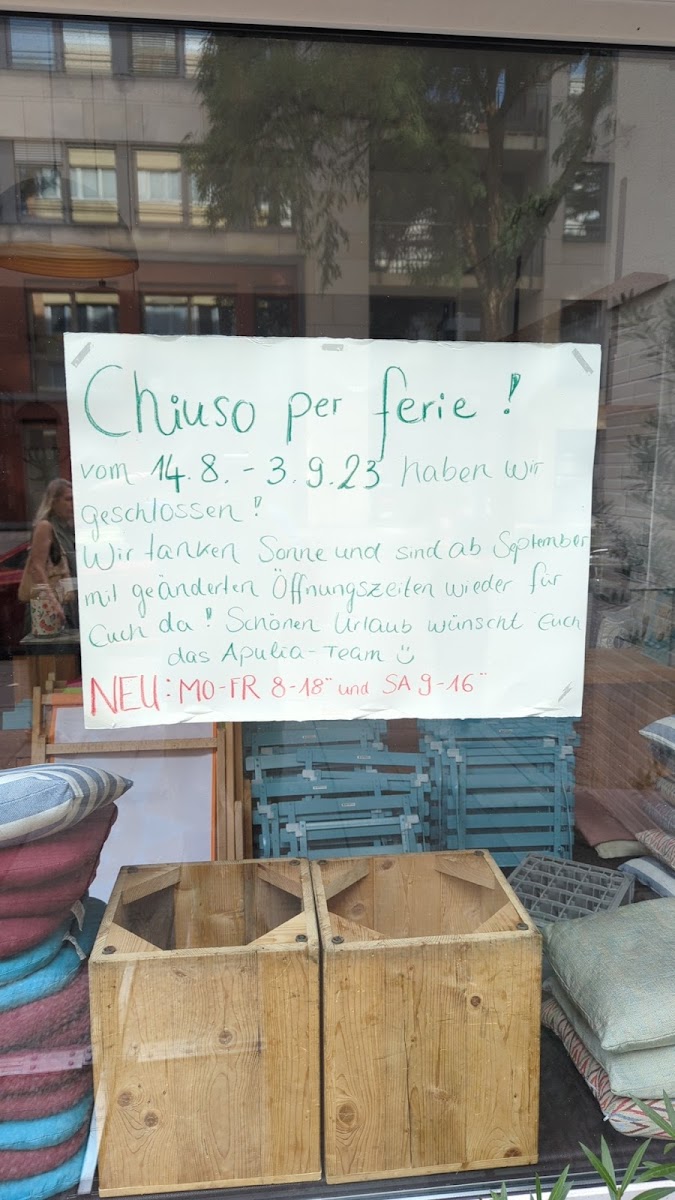 Chiuso per ferie!
vom 14.8. - 3.9.23 haben wir
geschlossen!
Wir tanken Sonne und sind ab September
mit geänderten Öffnungszeiten wieder für
Euch da! Schönen Urlaub wünscht Euch
das Apulia-Team ☺
NEU: MO-FR 8-18°° und SA 9-16°°